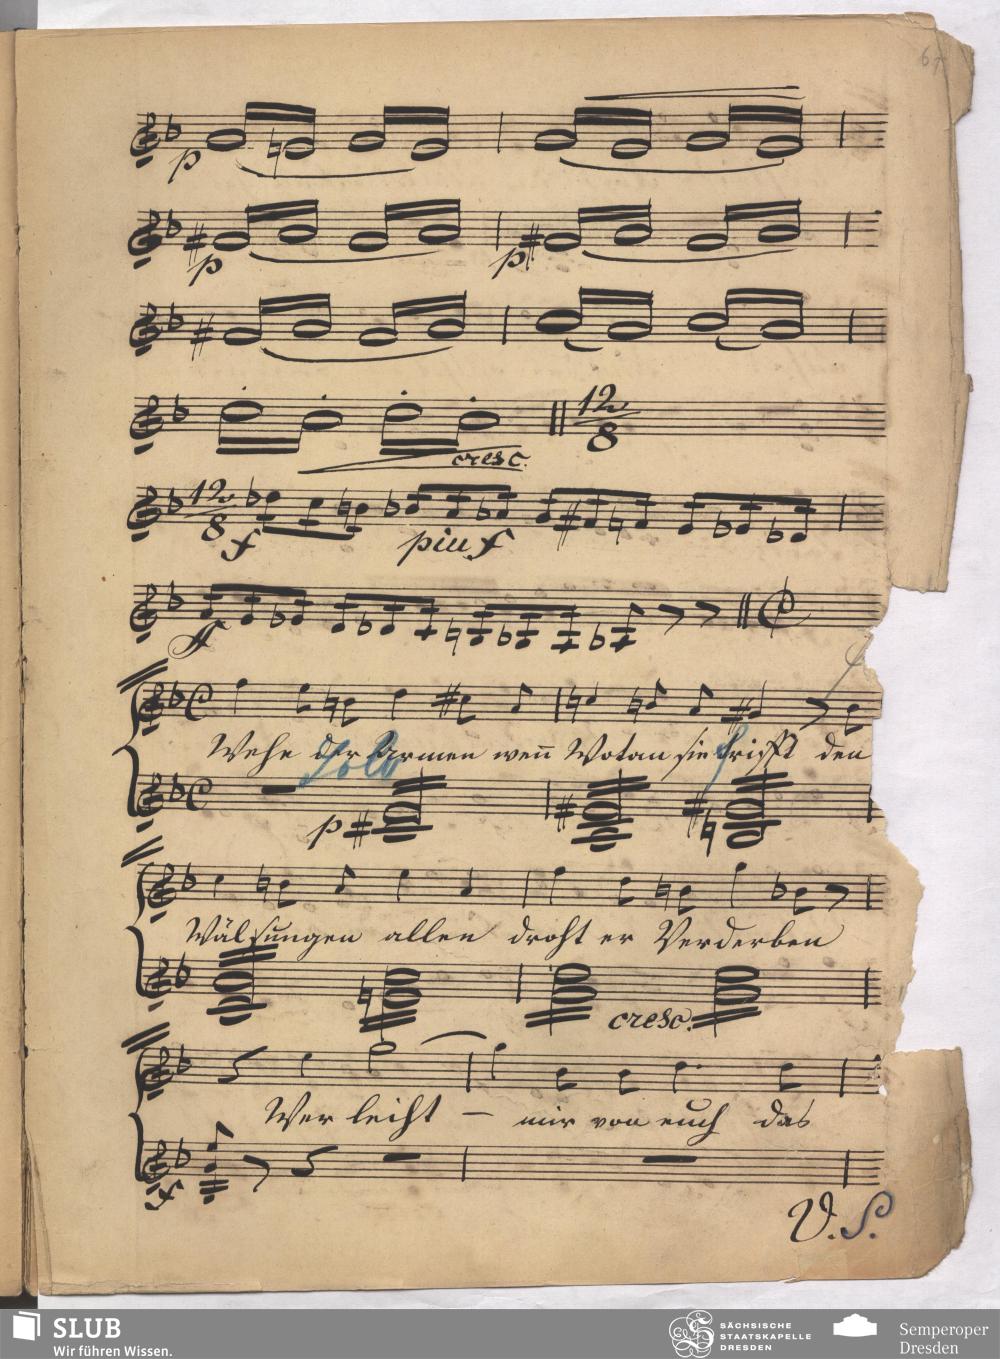 67
p
p
p
12/8
cresc.
12/8
f
piu f
ff
Wehe der Armen wen̄ Wotan sie trifft den
Solo
p
Wälsungen allen droht er Verderben
cresc.
Wer leiht — mir von euch das
f
V. S.
SLUB
Wir führen Wissen.
SÄCHSISCHE
STAATSKAPELLE
DRESDEN
Semperoper
Dresden